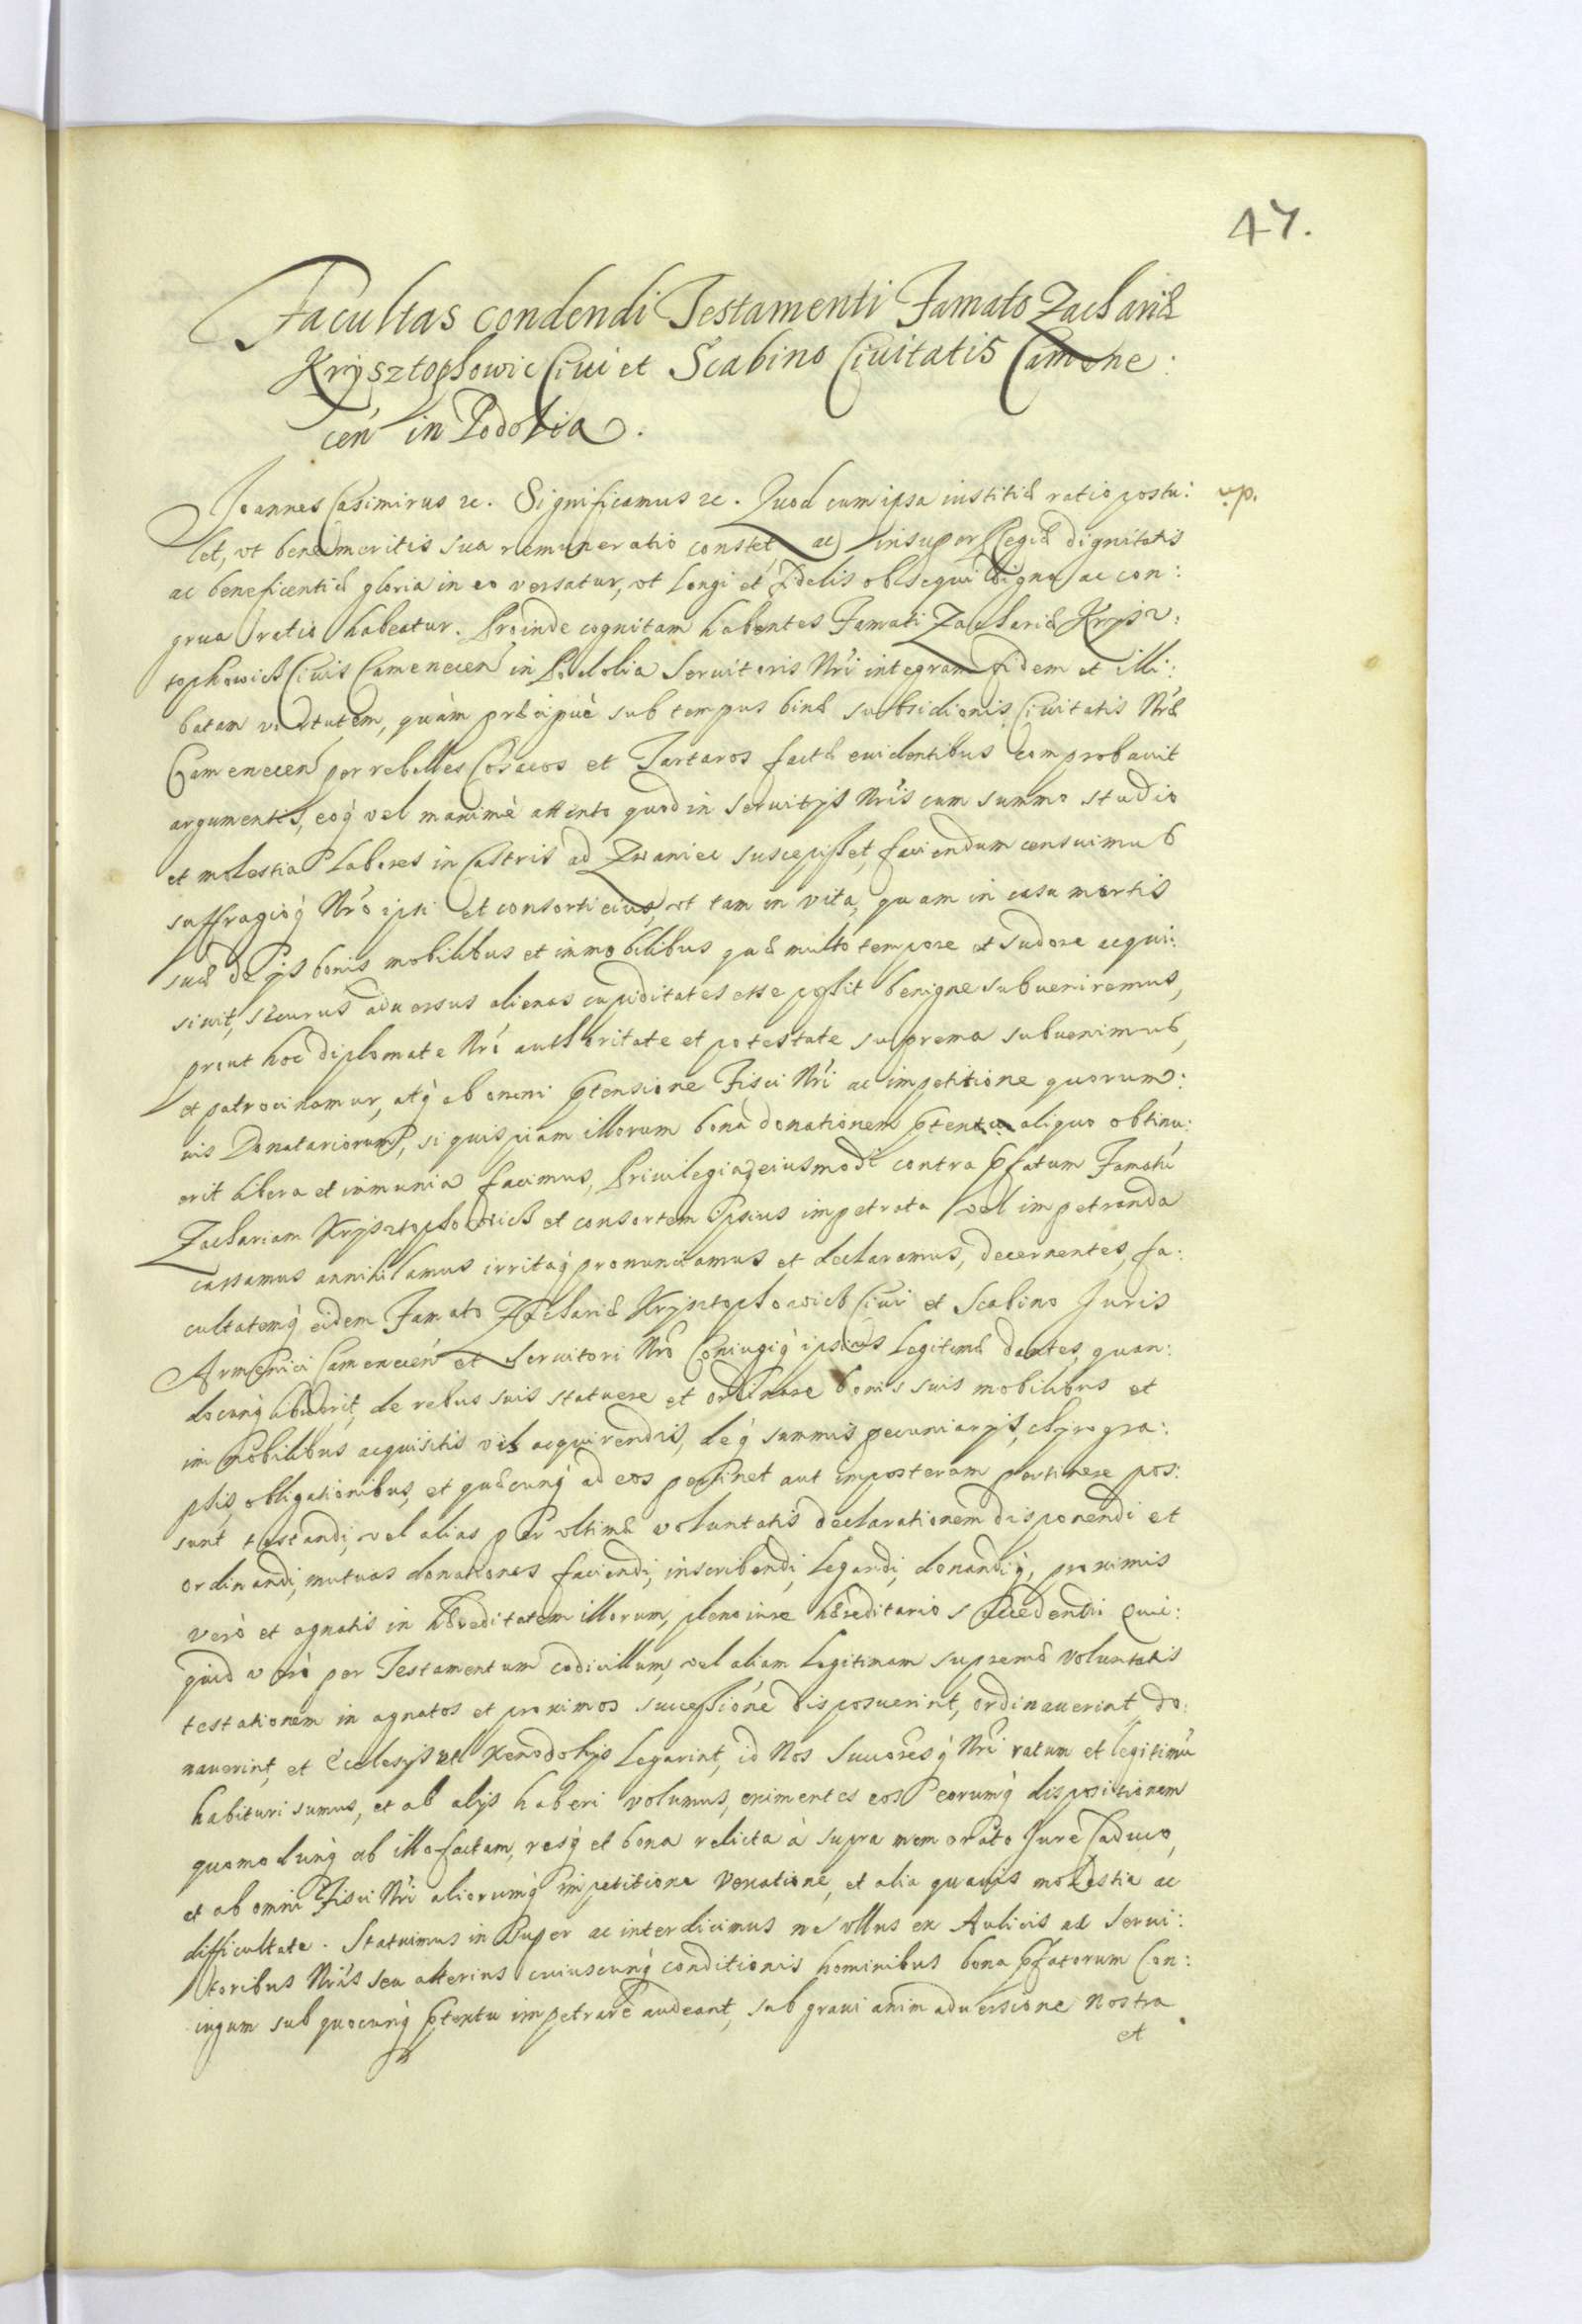 47.
Facultas condendi Testamenti Famato Zachariæ
Krysztophowic Ciui et Scabino Ciuitatis Camene:
cen̄ in Podolia.
Joannes Casimirus &c. Significamus &c. Quod cum ipsa iustitiæ ratio postu:
let, vt benemeritis sua remuneratio constet, ac insuper Regiæ dignitatis
ac beneficentiæ gloria in eo versatur, vt longi et fidelis obsequi digna ac con:
grua ratio habeatur. Proinde cognitam habentes Famati Zachariæ Krysz:
tophowich Ciuis Camenecen̄ in Podolia Seruitoris Nr̄i integram fidem et illi:
batam virtutem, quàm præcipuè sub tempus binæ subsidionis Ciuitatis Nr̄æ
Camenecen̄ per rebelles Cosacos et Tartaros factæ euidentibus comprobauit
argumentis, eoq́ vel maximè attento quod in seruitijs Nr̄is cum summo studio
et molestia labores in Castris ad Zwaniec suscepisset, faciendum censuimus
suffragioq́ Nr̄o ipsi et consorti eius, vt tam in vita, quam in casu mortis
suæ de ijs bonis mobilibus et immobilibus quæ multo tempore et sudore acqui:
siuit, securus aduersus alienas cupiditates esse possit benigne subueniremus,
prout hoc diplomate Nr̄o authoritate et potestate suprema subuenimus,
et patrocinamur, atq́ ab omni p̄tensione Fisci Nr̄i ac impetitione quorum:
uis Donatariorum, si quispiam illorum bona donationem p̄textu aliquo obtinu:
erit libera et immunia facimus, Priuilegia eiusmodi contra p̄fatum Famatū
Zachariam Krysztophowich et consortem ipsius impetrata vel impetranda
cassamus annihilamus irritaq́ pronunciamus et declaramus, decernentes, fa:
cultatemq́ eidem Famato Zachariæ Krysztophowich Ciui et Scabino Juris
Armenici Camenecen̄ et Seruitori Nr̄o Coniugiq́ ipsius legitimæ dantes, quan:
docunq́ libuerit, de rebus suis statuere et ordinare bonis suis mobilibus et
immobilibus acquisitis vel acquirendis, deq́ summis pecuniarijs, chyrogra:
phis, obligationibus, et quæcunq́ ad eos pertinet aut imposterum pertinere pos:
sunt testandi, vel alias per vltimæ voluntatis declarationem disponendi et
ordinandi, mutuas donationes faciendi, inscribendi, legandi, donandiq́, proximis
verò et agnatis in hæreditatem illorum, pleno iure hæreditario succedendi Quic:
quid verò per Testamentum codicillum, vel aliam legitimam supremæ voluntatis
testationem in agnatos et proximos successione disposuerint, ordinauerint do:
nauerint, et Ecclesijs vel Xenodohijs legarint, id Nos Succoresq́ Nr̄i ratum et legitimū
habituri sumus, et ab alijs haberi volumus, eximentes eos eorumq́ dispositionem
quomodunq́ ab illo factam, resq́ et bona relicta à supra memorato Jure Caduco,
et ab omni Fisci Nr̄i aliorumq́ impetitione vexatione, et alia quauis molestia ac
difficultate. Statuimus insuper ac interdicimus ne vllus ex Aulicis ac Serui:
toribus Nr̄is seu alterius cuiuscunq́ conditionis hominibus bona p̄fatorum Con:
iugum sub quocunq́ p̄textu impetrare audeant, sub graui animaduersione nostra
et